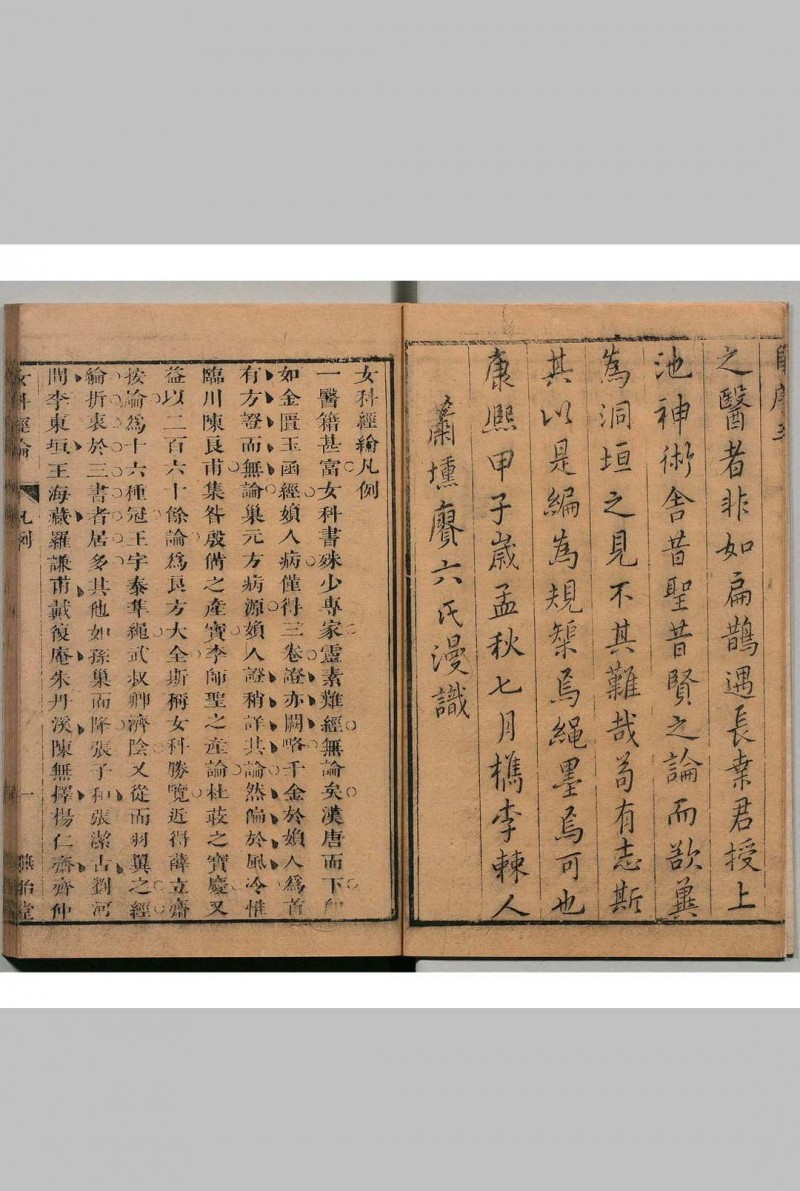 之醫者非如扁鵲遇長桑君授上
池神術舍昔聖昔賢之論而欲冀
為洞垣之見不其難哉苟有志斯
其以是編為規榘焉繩墨焉可也
康熙甲子歲孟秋七月檇李棘人
蕭壎賡六氏漫識
女科經綸凡例
一醫籍甚富女科書殊少專家靈素難經無論矣漢唐而下
如金匱玉函經婦人病僅得三卷證亦闕略千金於婦人為首
有方證而無論巢元方病源婦人證稍詳其論然偏於風冷惟
臨川陳良甫集昝殷備之產寶李師聖之產論杜荍之寶慶又
益以二百六十餘論為良方大全斯稱女科勝覽近得薛立齋
按論為十六種冠王宇泰準繩武叔卿濟陰又從而羽翼之經
綸折衷於三書者居多其他如孫巢而降張子和張潔古劉河
間李東垣王海藏羅謙甫戴復庵朱丹溪陳無擇楊仁齋齊仲
女科經綸 凡例 一 堂